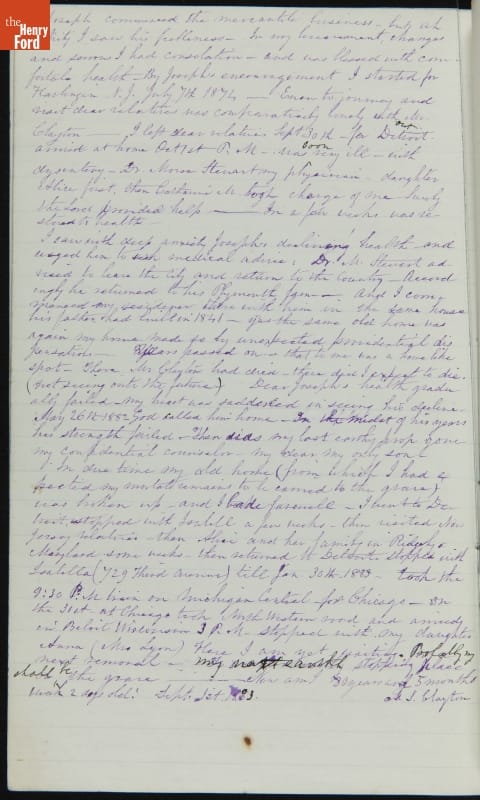 the Henry Ford
Joseph commenced the mercantile business - but
I saw his feebleness - In my bereavement, changes
and sorrows I had consolation - and was blessed with com-
fortable health - By Joseph's encouragement I started for
Harlingen N.J. July 7th 1874 - journey and
visit dear relatives was comparatively lonely with Mr.
Clayton - I left dear relatives Sept. 30th - for Detroit
arrived at home Oct 1st P.M. - was soon very ill - with
dysentery - Dr. Morse Stewart my physician - daughter
Alice first, then took charge of me - Surely
the Lord provided help - In a few weeks was re-
stored to health -
I saw with deep anxiety Joseph's declining health - and
urged him to seek medical advice: Dr. M. Stewart ad-
vised to leave the City and return to the Country - Accord
ingly he returned to his Plymouth farm - And I com-
menced my residence there with them in the same house
his father had built in 1841 - the same old home was
again my home made so by unexpected providential dis
pensations - Years passed on - that to me was a home like
spot - There Mr. Clayton had died - there did I expect to die -
(not seeing into the future) Dear Joseph's health gradu-
ally failed - my heart was saddened in seeing his decline -
May 26th 1882 God called him home - In the midst of his years
his strength failed - Then did my last earthly prop gone
my confidential counselor - my dear, my only son -
In due time my old home (from which I had ex
pected my mortal remains to be carried to the grave)
was broken up - and I bade farewell - I went to De-
troit, stopped with Isabella a few weeks - then visited New
Jersey relatives - then and her family in Ridgely
Maryland some weeks - then returned to Detroit stopped with
Isabella (729 Third Avenue) till Jan. 30th 1883 - took the
9:30 P.M. train on Michigan Central for Chicago - on
the 31st at Chicago took North Western road and arrived
in Beloit Wisconsin 3 P.M. Stopped with my daughter
Anna (Mrs Lyon) Here I am yet waiting - Probably my
next removal - my next earthly stopping place
shall be the grave - Now am years and 5 months
1 week 2 days old! Sept. 1st. 1883. Clayton